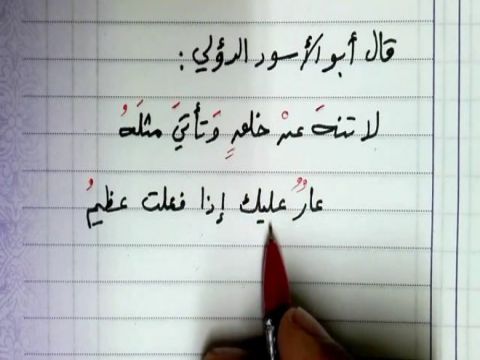 قال أبو الأسود الدؤلي :
لا تنهَ عنْ خلقٍ وَتأتيَ مثلَهُ
عارٌ عليك إذا فعلت عظيمُ